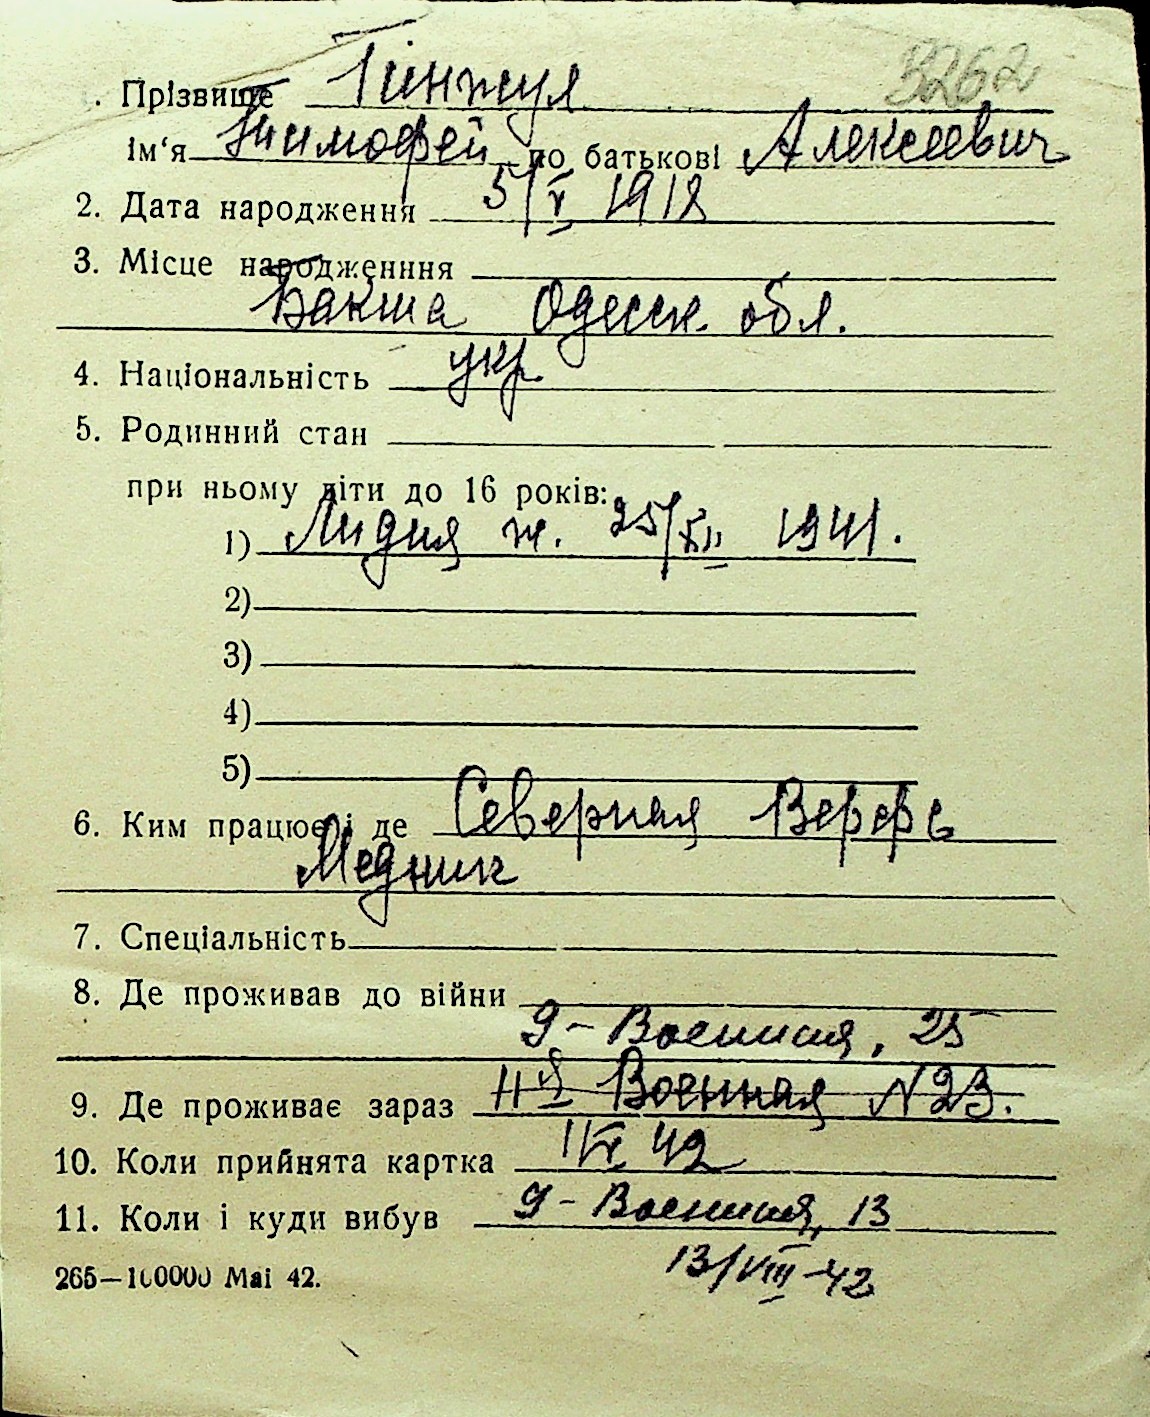 3262
. Прізвище Гинжул
ім‘я Тимофей по батькові Алексеевич
2. Дата народження 5/V 1918
3. Місце народженння
Бакша Одесск. обл.
4. Національність укр.
5. Родинний стан
при ньому діти до 16 років:
1) Лидия ж. 25/XII 1941.
2)
3)
4)
5)
6. Ким працює і де Северная Верфь
Медник
7. Спеціальність
8. Де проживав до війни
9-Военная, 25
9. Де проживає зараз Военная №23.
10. Коли прийнята картка 42
11. Коли і куди вибув 9-Военная, 13
13/VIII-42
265—100000 Mai 42.